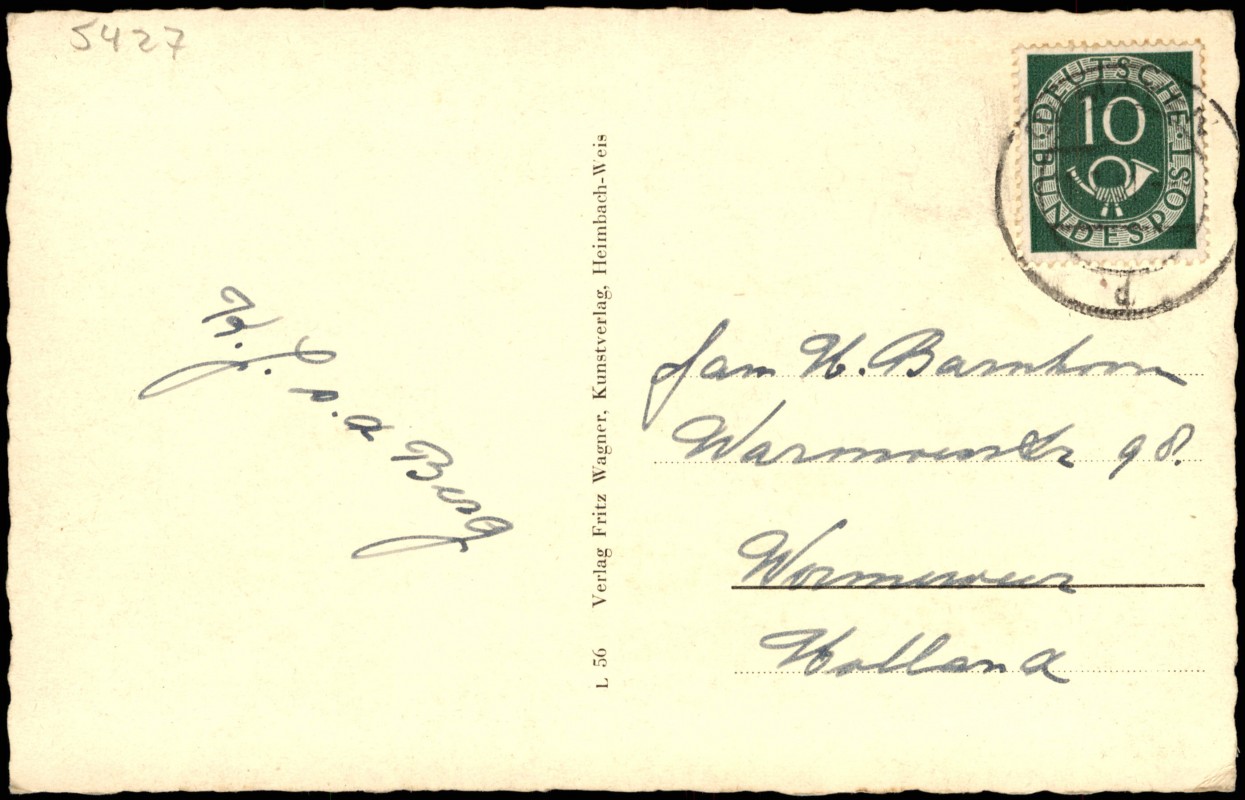 5427
DEUTSCHE BUNDESPOST
10
p
L 56 Verlag Fritz Wagner, Kunstverlag, Heimbach-Weis
v. d. Berg
Jan H. Barnhoorn
98.
Wormerveer
Holland